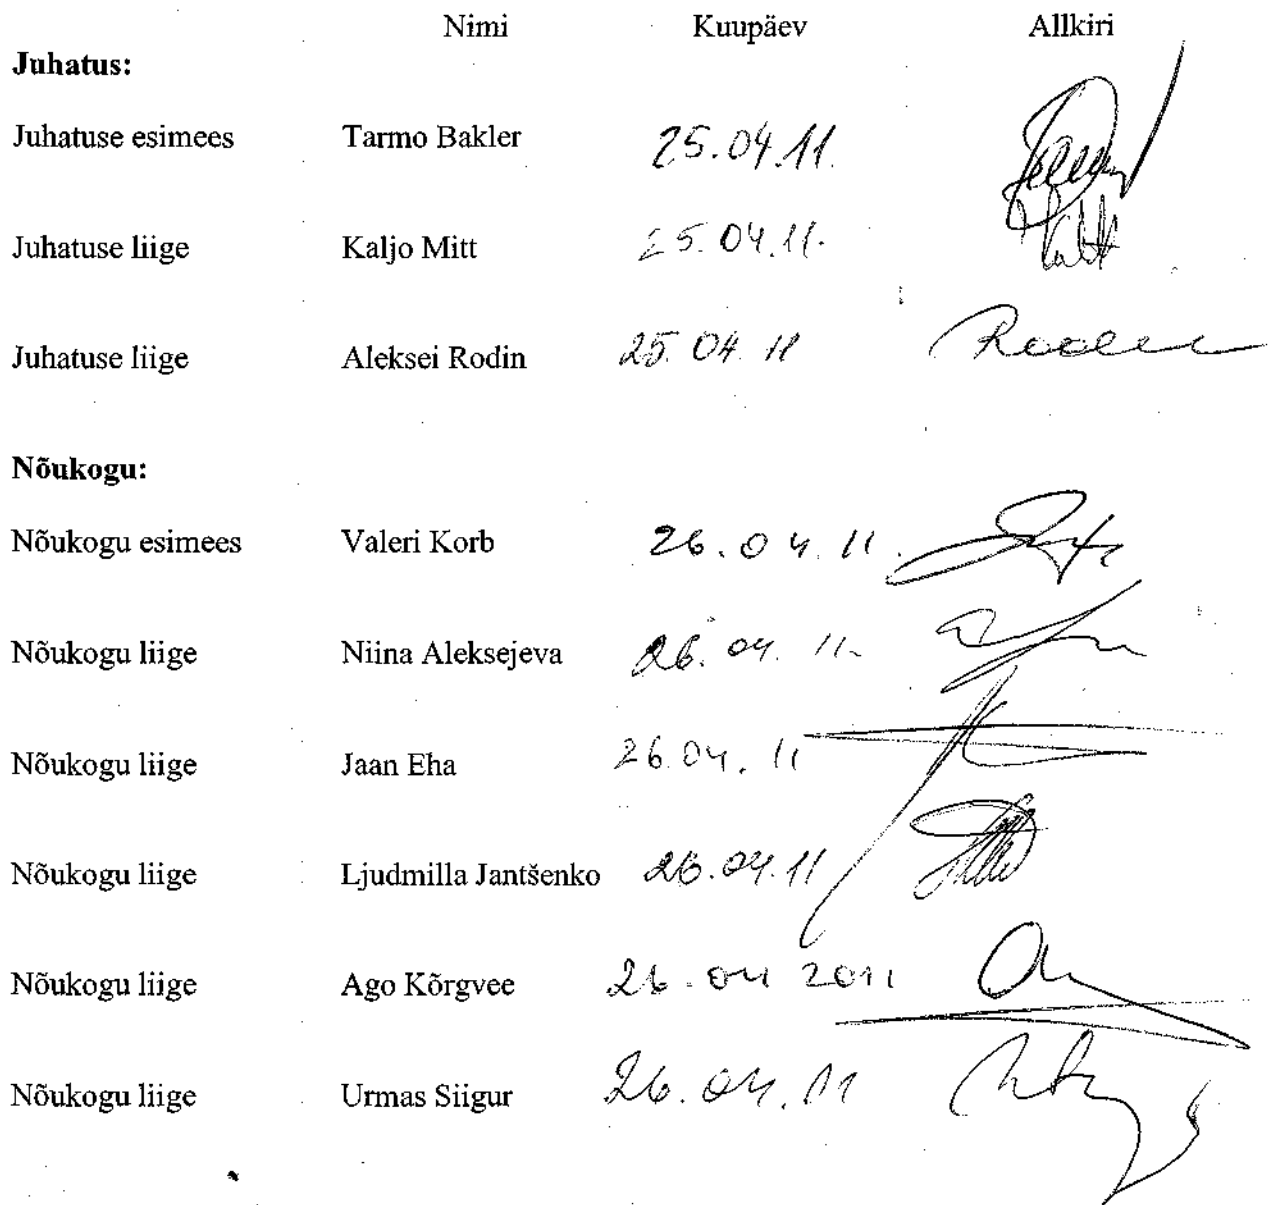 Nimi Kuupäev Allkiri
Juhatus:
Juhatuse esimees Tarmo Bakler 25.04.11.
Juhatuse liige Kaljo Mitt 25.04.11.
Juhatuse liige Aleksei Rodin 25.04.11
Nõukogu:
Nõukogu esimees Valeri Korb 26.04.11.
Nõukogu liige Niina Aleksejeva 26.04.11.
Nõukogu liige Jaan Eha 26.04.11
Nõukogu liige Ljudmilla Jantšenko 26.04.11
Nõukogu liige Ago Kõrgvee 26.04 2011
Nõukogu liige Urmas Siigur 26.04.11